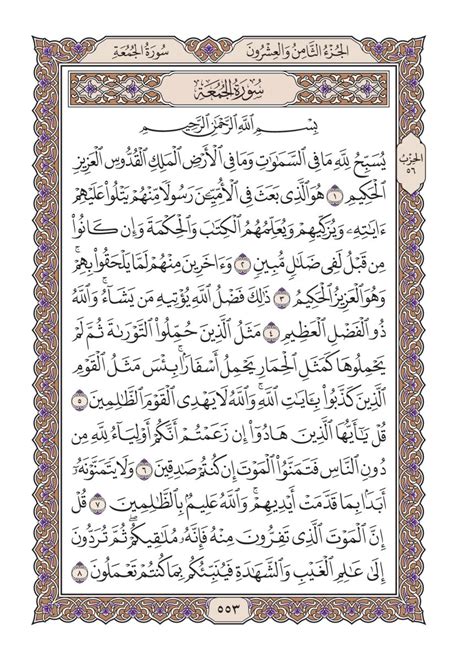 الجُزءُ الثَّامِنُ وَالعِشْرُونَ
سُورَةُ الجُمُعَةِ
الحِزْبُ
٥٦
سُورَةُ الجُمُعَةِ
بِسْمِ ٱللَّهِ ٱلرَّحْمَٰنِ ٱلرَّحِيمِ
يُسَبِّحُ لِلَّهِ مَا فِي ٱلسَّمَٰوَٰتِ وَمَا فِي ٱلْأَرْضِ ٱلْمَلِكِ ٱلْقُدُّوسِ ٱلْعَزِيزِ
ٱلْحَكِيمِ ١ هُوَ ٱلَّذِي بَعَثَ فِي ٱلْأُمِّيِّـۧنَ رَسُولًا مِّنْهُمْ يَتْلُوا۟ عَلَيْهِمْ
ءَايَٰتِهِۦ وَيُزَكِّيهِمْ وَيُعَلِّمُهُمُ ٱلْكِتَٰبَ وَٱلْحِكْمَةَ وَإِن كَانُوا۟
مِن قَبْلُ لَفِي ضَلَٰلٍ مُّبِينٍ ٢ وَءَاخَرِينَ مِنْهُمْ لَمَّا يَلْحَقُوا۟ بِهِمْۚ
وَهُوَ ٱلْعَزِيزُ ٱلْحَكِيمُ ٣ ذَٰلِكَ فَضْلُ ٱللَّهِ يُؤْتِيهِ مَن يَشَآءُۚ وَٱللَّهُ
ذُو ٱلْفَضْلِ ٱلْعَظِيمِ ٤ مَثَلُ ٱلَّذِينَ حُمِّلُوا۟ ٱلتَّوْرَىٰةَ ثُمَّ لَمْ
يَحْمِلُوهَا كَمَثَلِ ٱلْحِمَارِ يَحْمِلُ أَسْفَارًۢاۚ بِئْسَ مَثَلُ ٱلْقَوْمِ
ٱلَّذِينَ كَذَّبُوا۟ بِـَٔايَٰتِ ٱللَّهِۚ وَٱللَّهُ لَا يَهْدِي ٱلْقَوْمَ ٱلظَّٰلِمِينَ ٥
قُلْ يَٰٓأَيُّهَا ٱلَّذِينَ هَادُوٓا۟ إِن زَعَمْتُمْ أَنَّكُمْ أَوْلِيَآءُ لِلَّهِ مِن
دُونِ ٱلنَّاسِ فَتَمَنَّوُا۟ ٱلْمَوْتَ إِن كُنتُمْ صَٰدِقِينَ ٦ وَلَا يَتَمَنَّوْنَهُۥٓ
أَبَدًۢا بِمَا قَدَّمَتْ أَيْدِيهِمْۚ وَٱللَّهُ عَلِيمٌۢ بِٱلظَّٰلِمِينَ ٧ قُلْ
إِنَّ ٱلْمَوْتَ ٱلَّذِي تَفِرُّونَ مِنْهُ فَإِنَّهُۥ مُلَٰقِيكُمْۖ ثُمَّ تُرَدُّونَ
إِلَىٰ عَٰلِمِ ٱلْغَيْبِ وَٱلشَّهَٰدَةِ فَيُنَبِّئُكُم بِمَا كُنتُمْ تَعْمَلُونَ ٨
٥٥٣